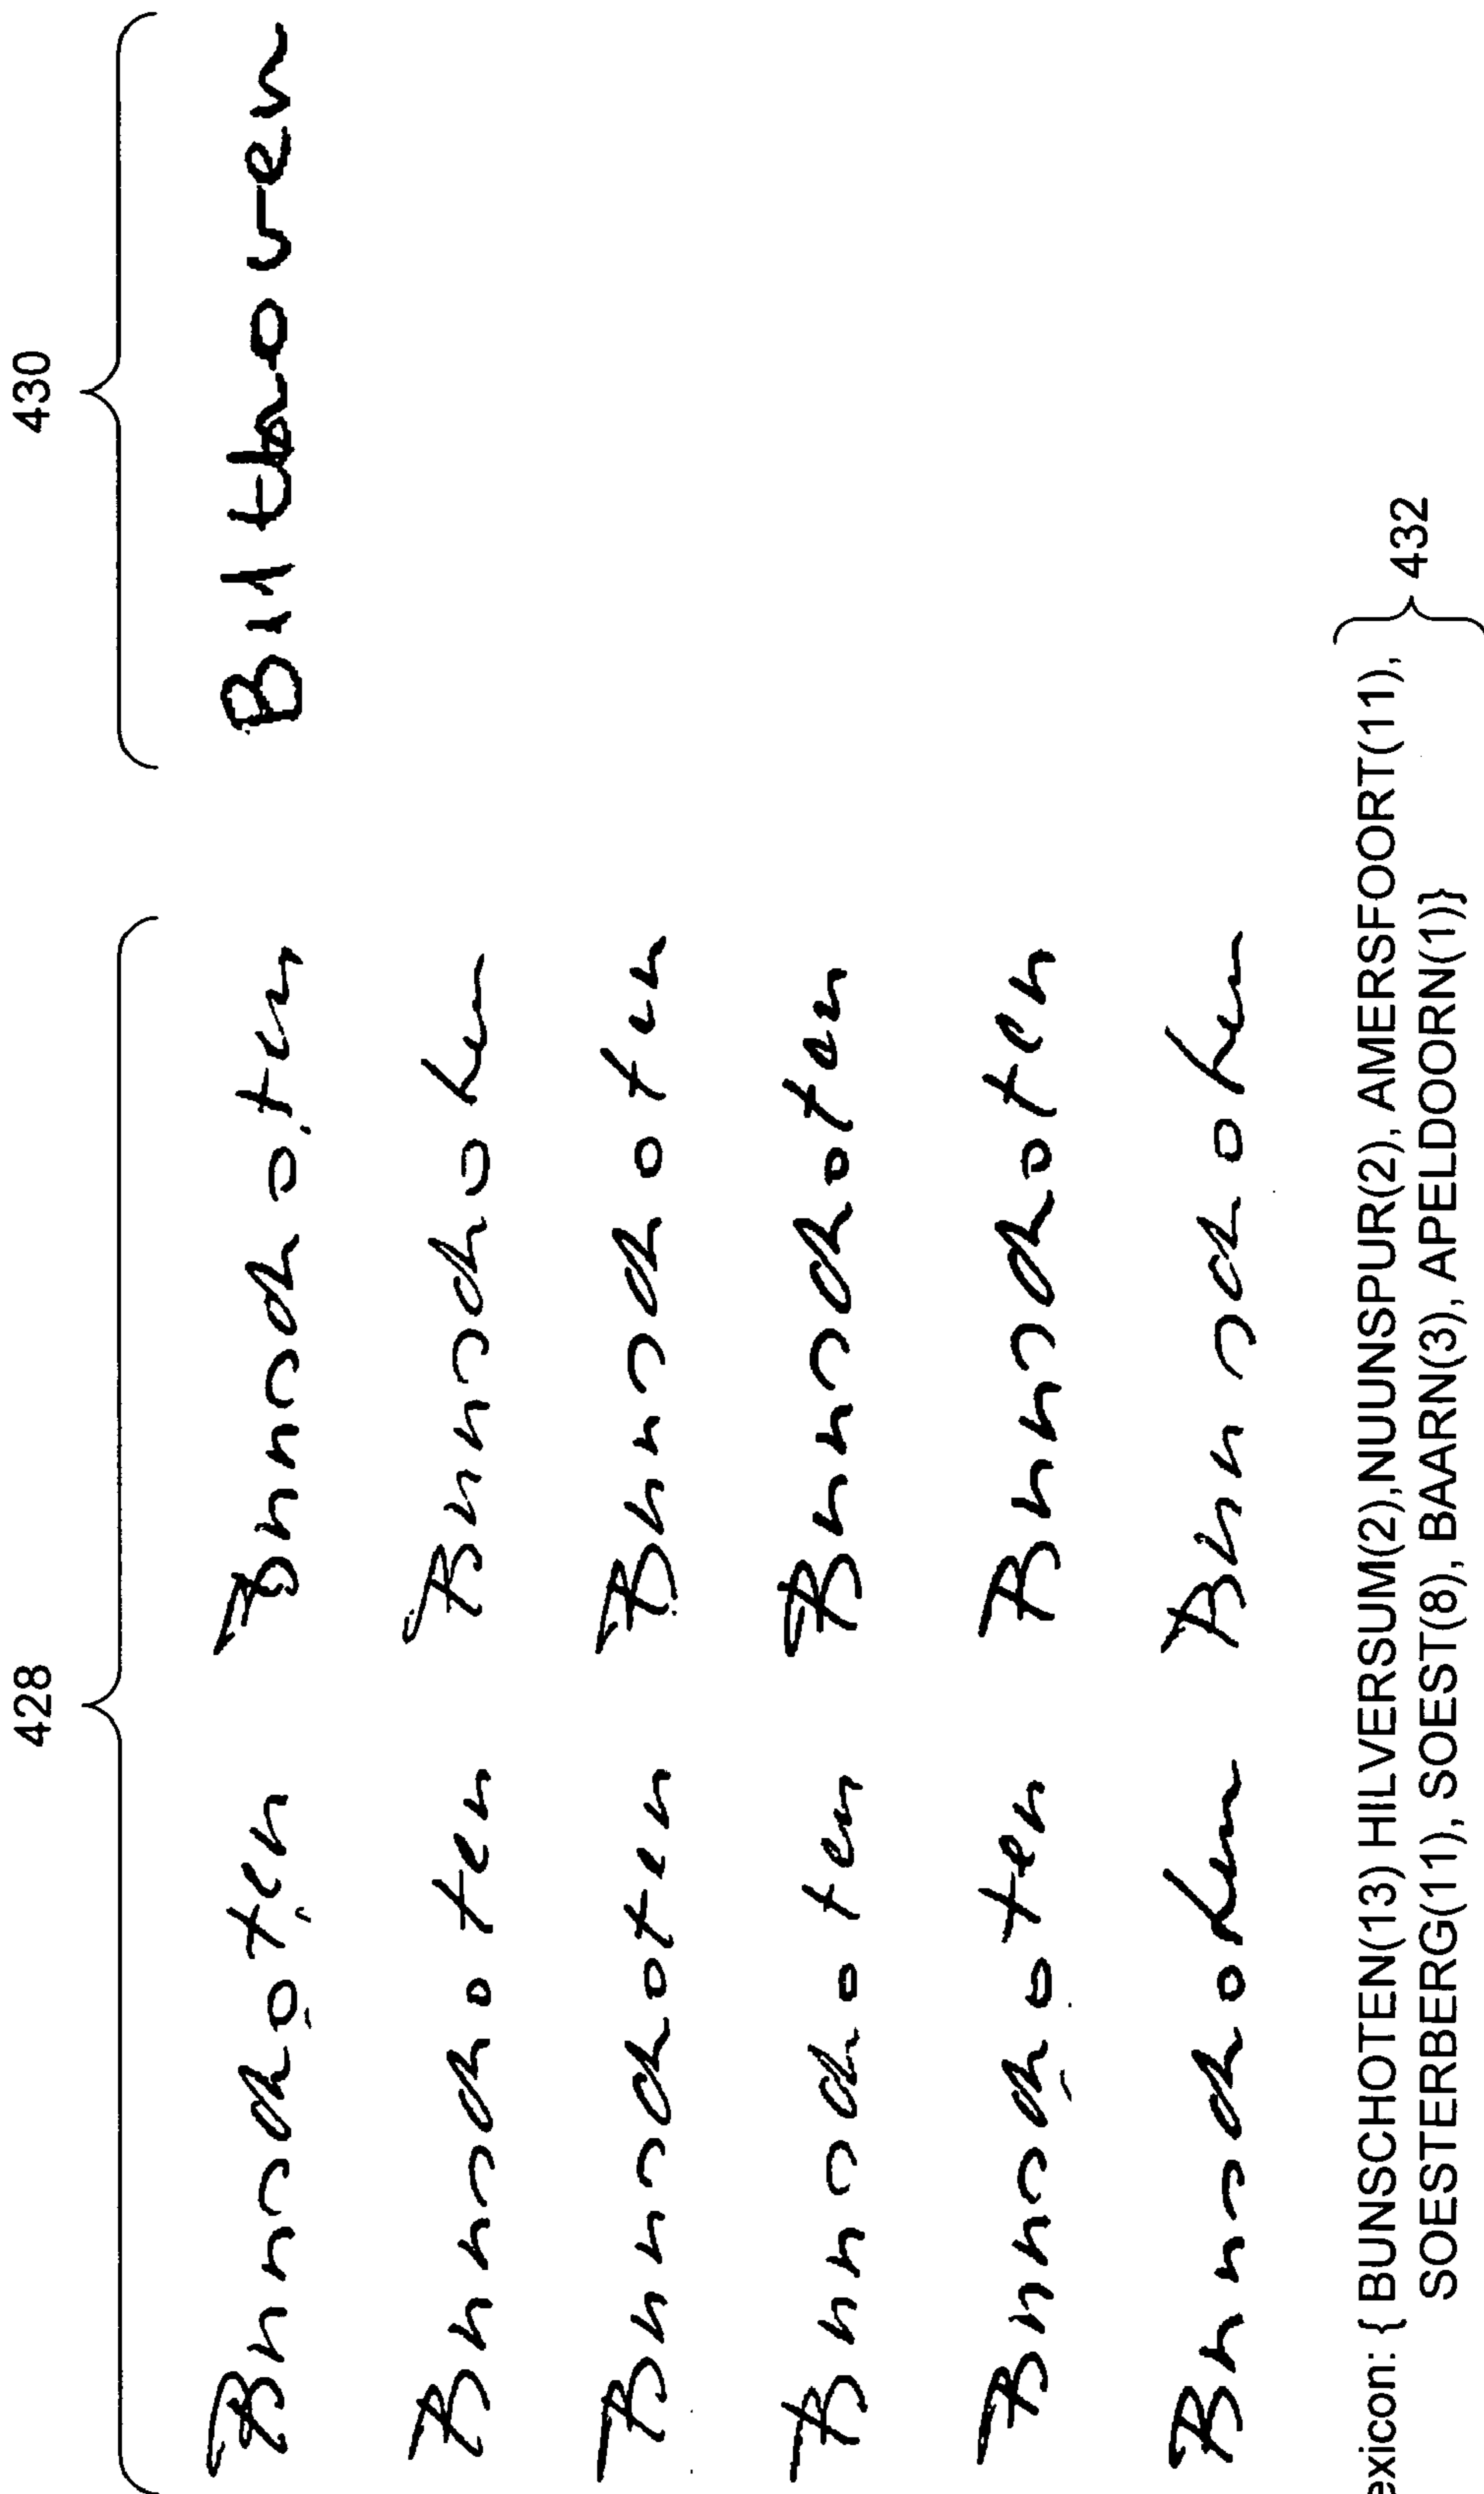 428 430
Bunschoten Bunschoten Bilthoven
Bunschoten Bunschoten
Bunschoten Bunschoten
Bunschoten Bunschoten
Bunschoten Bunschoten
Bunschoten Bunschoten
exicon: { BUNSCHOTEN(13) HILVERSUM(2),NUUNSPUR(2), AMERSFOORT(11),
SOESTERBERG(11), SOEST(8), BAARN(3), APELDOORN(1)}
432